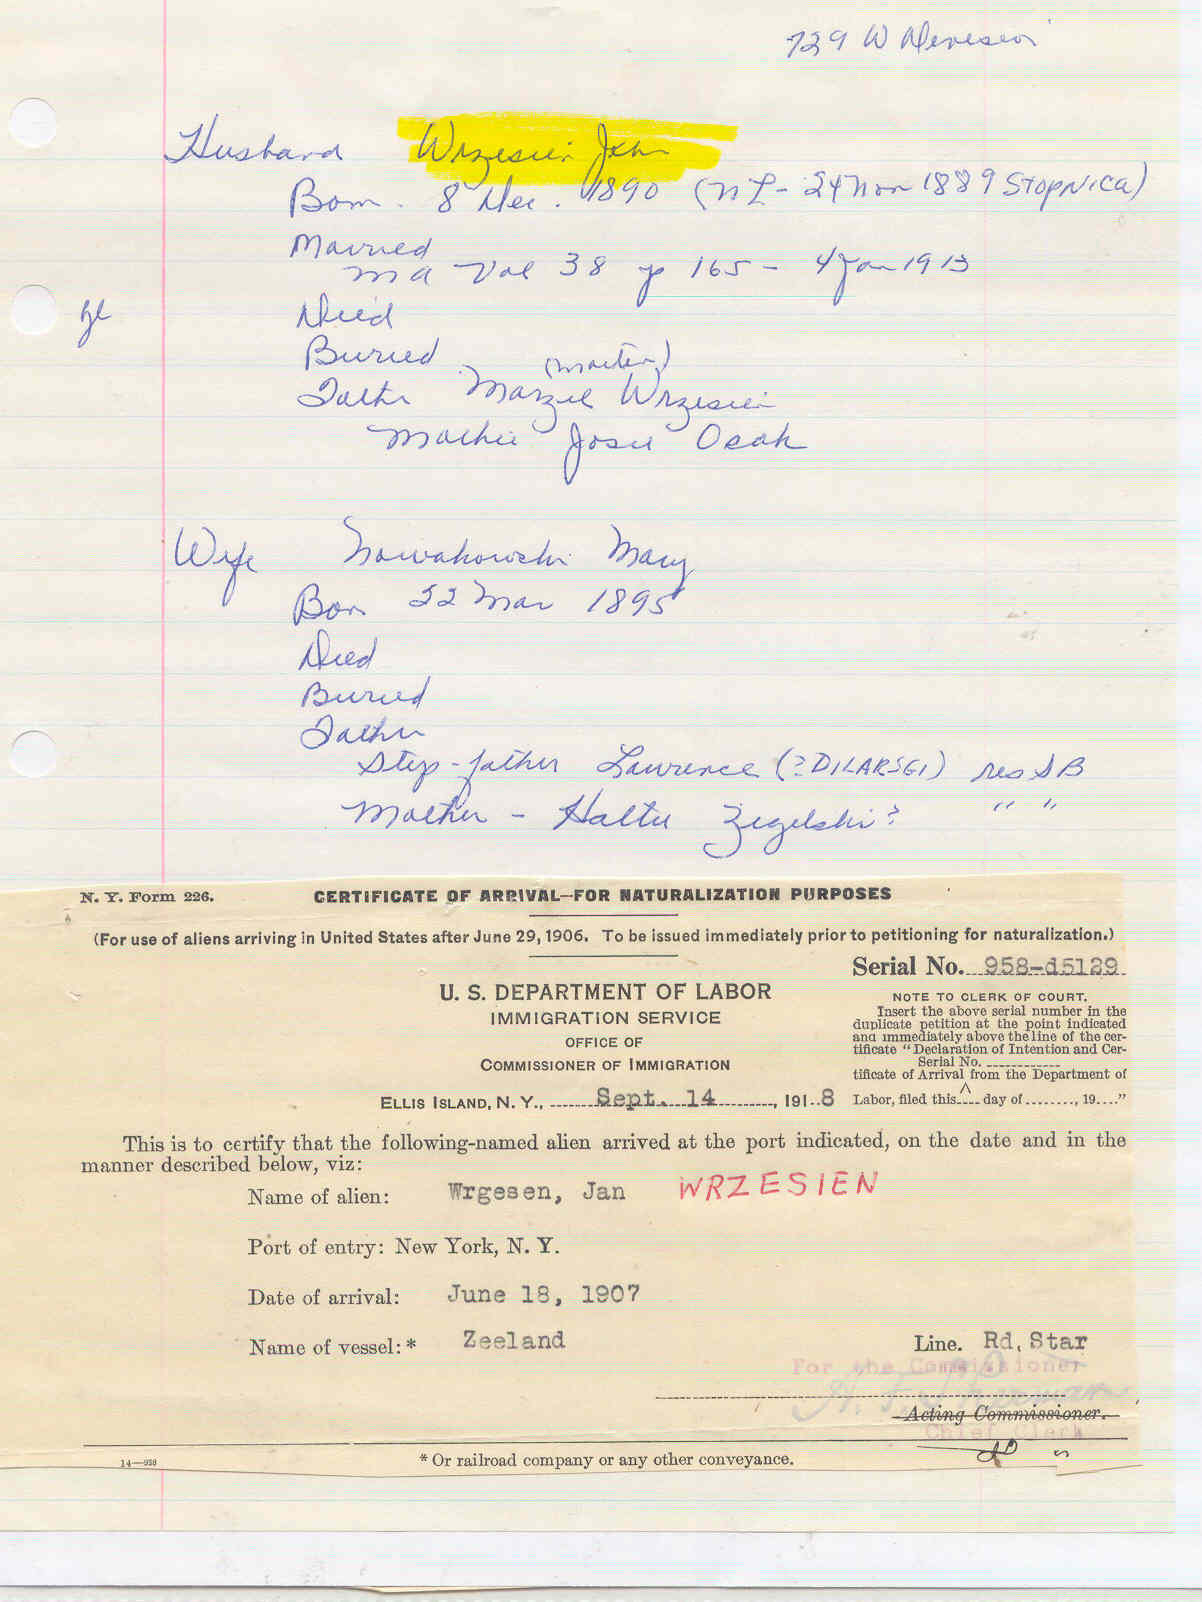 729 W Division
Husband Wrzesien John
Born . 8 Dec . 1890 (NL - 24 Nov 1889 STOPNICA)
Married
Ma Vol 38 p 165 - 4 Jan 1913
Died
Buried
(Martin)
Father Marzel Wrzesien
Mother Josie
Wife Nowakowski Mary
Born 22 Mar 1895
Died
Buried
Father
Step-father Lawrence (?DILARSGI) res SB
Mother - Hattie Zegelski? " "
N. Y. Form 226. CERTIFICATE OF ARRIVAL—FOR NATURALIZATION PURPOSES
(For use of aliens arriving in United States after June 29, 1906. To be issued immediately prior to petitioning for naturalization.)
Serial No. 958-d5129
U. S. DEPARTMENT OF LABOR
IMMIGRATION SERVICE
OFFICE OF
COMMISSIONER OF IMMIGRATION
ELLIS ISLAND, N. Y., Sept. 14, 1918
NOTE TO CLERK OF COURT.
Insert the above serial number in the
duplicate petition at the point indicated
and immediately above the line of the cer-
tificate "Declaration of Intention and Cer-
Serial No. ............
tificate of Arrival from the Department of
^
Labor, filed this .... day of ........, 19...."
This is to certify that the following-named alien arrived at the port indicated, on the date and in the
manner described below, viz:
Name of alien: Wrgesen, Jan WRZESIEN
Port of entry: New York, N. Y.
Date of arrival: June 18, 1907
Name of vessel:* Zeeland Line. Rd. Star
For the Commissioner
Acting Commissioner.
Chief Clerk
14—938
* Or railroad company or any other conveyance.